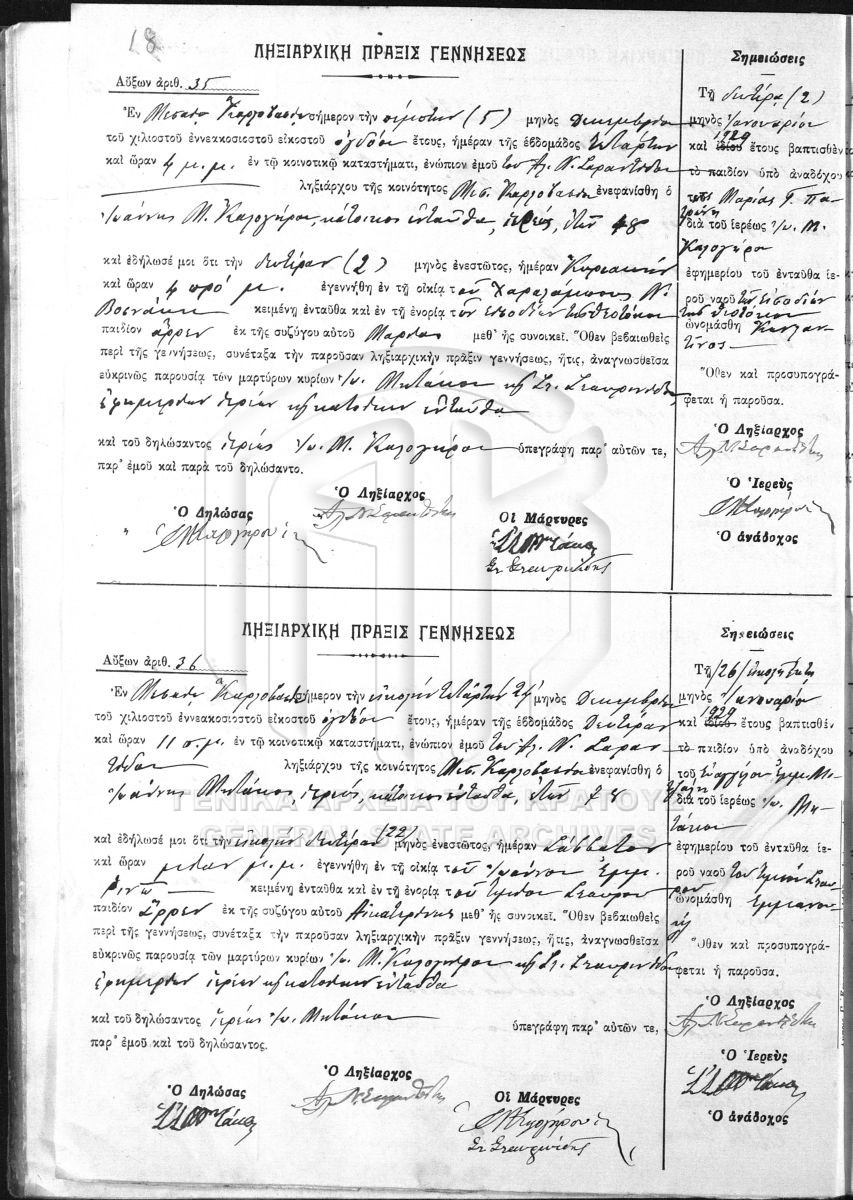 18
ΛΗΞΙΑΡΧΙΚΗ ΠΡΑΞΙΣ ΓΕΝΝΗΣΕΩΣ
Αὔξων ἀριθ. 35
Ἐν Μεσαίῳ Καρλοβασίῳ σήμερον τὴν πέμπτην (5) μηνὸς Δεκεμβρίου
τοῦ χιλιοστοῦ ἐννεακοσιοστοῦ εἰκοστοῦ ὀγδόου ἔτους, ἡμέραν τῆς ἑβδομάδος Τετάρτην
καὶ ὥραν 4 μ.μ. ἐν τῷ κοινοτικῷ καταστήματι, ἐνώπιον ἐμοῦ τοῦ Ἀλ. Ν.
ληξιάρχου τῆς κοινότητος Μεσ. Καρλοβασίου ἐνεφανίσθη ὁ
Ἰωάννης Μ. Καλογήρου, κάτοικος ἐνταῦθα, ἱερεύς, ἐτῶν 48
καὶ ἐδήλωσέ μοι ὅτι τὴν Δευτέραν (2) μηνὸς ἐνεστῶτος, ἡμέραν Κυριακὴν
καὶ ὥραν 4 πρὸ μ. ἐγεννήθη ἐν τῇ οἰκίᾳ τοῦ Χαραλάμπους Ν.
κειμένῃ ἐνταῦθα καὶ ἐν τῇ ἐνορίᾳ τῶν Εἰσοδίων τῆς Θεοτόκου
παιδίον ἄρρεν ἐκ τῆς συζύγου αὐτοῦ Μαρίας μεθ᾽ ἧς συνοικεῖ. Ὅθεν βεβαιωθεὶς
περὶ τῆς γεννήσεως, συνέταξα τὴν παροῦσαν ληξιαρχικὴν πρᾶξιν γεννήσεως, ἥτις, ἀναγνωσθεῖσα
εὐκρινῶς παρουσίᾳ τῶν μαρτύρων κυρίων Ἰω. Μυτάκου κ Στ. Σταυρινίδου
ἐφημερίων ἱερέων κ κατοίκων ἐνταῦθα
καὶ τοῦ δηλώσαντος ἱερέως Ἰω. Μ. Καλογήρου ὑπεγράφη παρ᾽ αὐτῶν τε,
παρ᾽ ἐμοῦ καὶ παρὰ τοῦ δηλώσαντο.
Ὁ Δηλώσας
Ὁ Ληξίαρχος
Οἱ Μάρτυρες
Στ Σταυρινίδης
Σημειώσεις
Τῇ δευτέρᾳ (2)
μηνὸς Ἰανουαρίου
1929
καὶ ἰδίου ἔτους βαπτισθὲν
τὸ παιδίον ὑπὸ ἀναδόχου
τῆς Μαρίας Γ.
διὰ τοῦ ἱερέως Ἰω. Μ.
Καλογήρου
ἐφημερίου τοῦ ἐνταῦθα ἱε-
ροῦ ναοῦ τῶν Εἰσοδίων
τῆς Θεοτόκου
ὠνομάσθη Κωνσταν
τῖνος
Ὅθεν καὶ προσυπογρά-
φεται ἡ παροῦσα.
Ὁ Ληξίαρχος
Ὁ Ἱερεὺς
Ὁ ἀνάδοχος
ΛΗΞΙΑΡΧΙΚΗ ΠΡΑΞΙΣ ΓΕΝΝΗΣΕΩΣ
Αὔξων ἀριθ. 36
Ἐν Μεσαίῳ Καρλοβασίῳ σήμερον τὴν εἰκοστὴν τετάρτην 24 μηνὸς Δεκεμβρίου
τοῦ χιλιοστοῦ ἐννεακοσιοστοῦ εἰκοστοῦ ὀγδόου ἔτους, ἡμέραν τῆς ἑβδομάδος Δευτέραν
καὶ ὥραν 11 π.μ. ἐν τῷ κοινοτικῷ καταστήματι, ἐνώπιον ἐμοῦ τοῦ Ἀλ. Ν.
ληξιάρχου τῆς κοινότητος Μεσ. Καρλοβασίου ἐνεφανίσθη ὁ
Ἰωάννης Μυτάκος, ἱερεύς, κάτοικος ἐνταῦθα, ἐτῶν
ΓΕΝΙΚΑ ΑΡΧΕΙΑ ΤΟΥ ΚΡΑΤΟΥΣ
GENERAL STATE ARCHIVES
καὶ ἐδήλωσέ μοι ὅτι τὴν εἰκοστὴν δευτέραν (22) μηνὸς ἐνεστῶτος, ἡμέραν Σάββατον
καὶ ὥραν μ.μ. ἐγεννήθη ἐν τῇ οἰκίᾳ τοῦ Ἰωάννου Ἐμμ.
κειμένῃ ἐνταῦθα καὶ ἐν τῇ ἐνορίᾳ τοῦ Τιμίου Σταυροῦ
παιδίον ἄρρεν ἐκ τῆς συζύγου αὐτοῦ Αἰκατερίνης μεθ᾽ ἧς συνοικεῖ. Ὅθεν βεβαιωθεὶς
περὶ τῆς γεννήσεως, συνέταξα τὴν παροῦσαν ληξιαρχικὴν πρᾶξιν γεννήσεως, ἥτις, ἀναγνωσθεῖσα
εὐκρινῶς παρουσίᾳ τῶν μαρτύρων κυρίων Ἰω. Μ. Καλογήρου κ Στ. Σταυρινίδου
ἐφημερίων ἱερέων κ κατοίκων ἐνταῦθα
καὶ τοῦ δηλώσαντος ἱερέως Ἰω. Μυτάκου ὑπεγράφη παρ᾽ αὐτῶν τε,
παρ᾽ ἐμοῦ καὶ τοῦ δηλώσαντος.
Ὁ Δηλώσας
Ὁ Ληξίαρχος
Οἱ Μάρτυρες
Στ Σταυρινίδης
Σημειώσεις
Τῇ /26/ εἰκοστῇ ἕκτῃ
μηνὸς Ἰανουαρίου
1929
καὶ ἰδίου ἔτους βαπτισθὲν
τὸ παιδίον ὑπὸ ἀναδόχου
τοῦ Εὐαγγέλου Ἐμμ.
διὰ τοῦ ἱερέως Ἰω. Μυ-
τάκου
ἐφημερίου τοῦ ἐνταῦθα ἱε-
ροῦ ναοῦ τοῦ Τιμίου Σταυ
ροῦ
ὠνομάσθη Ἐμμανου
ὴλ
Ὅθεν καὶ προσυπογρά-
φεται ἡ παροῦσα.
Ὁ Ληξίαρχος
Ὁ Ἱερεὺς
Ὁ ἀνάδοχος